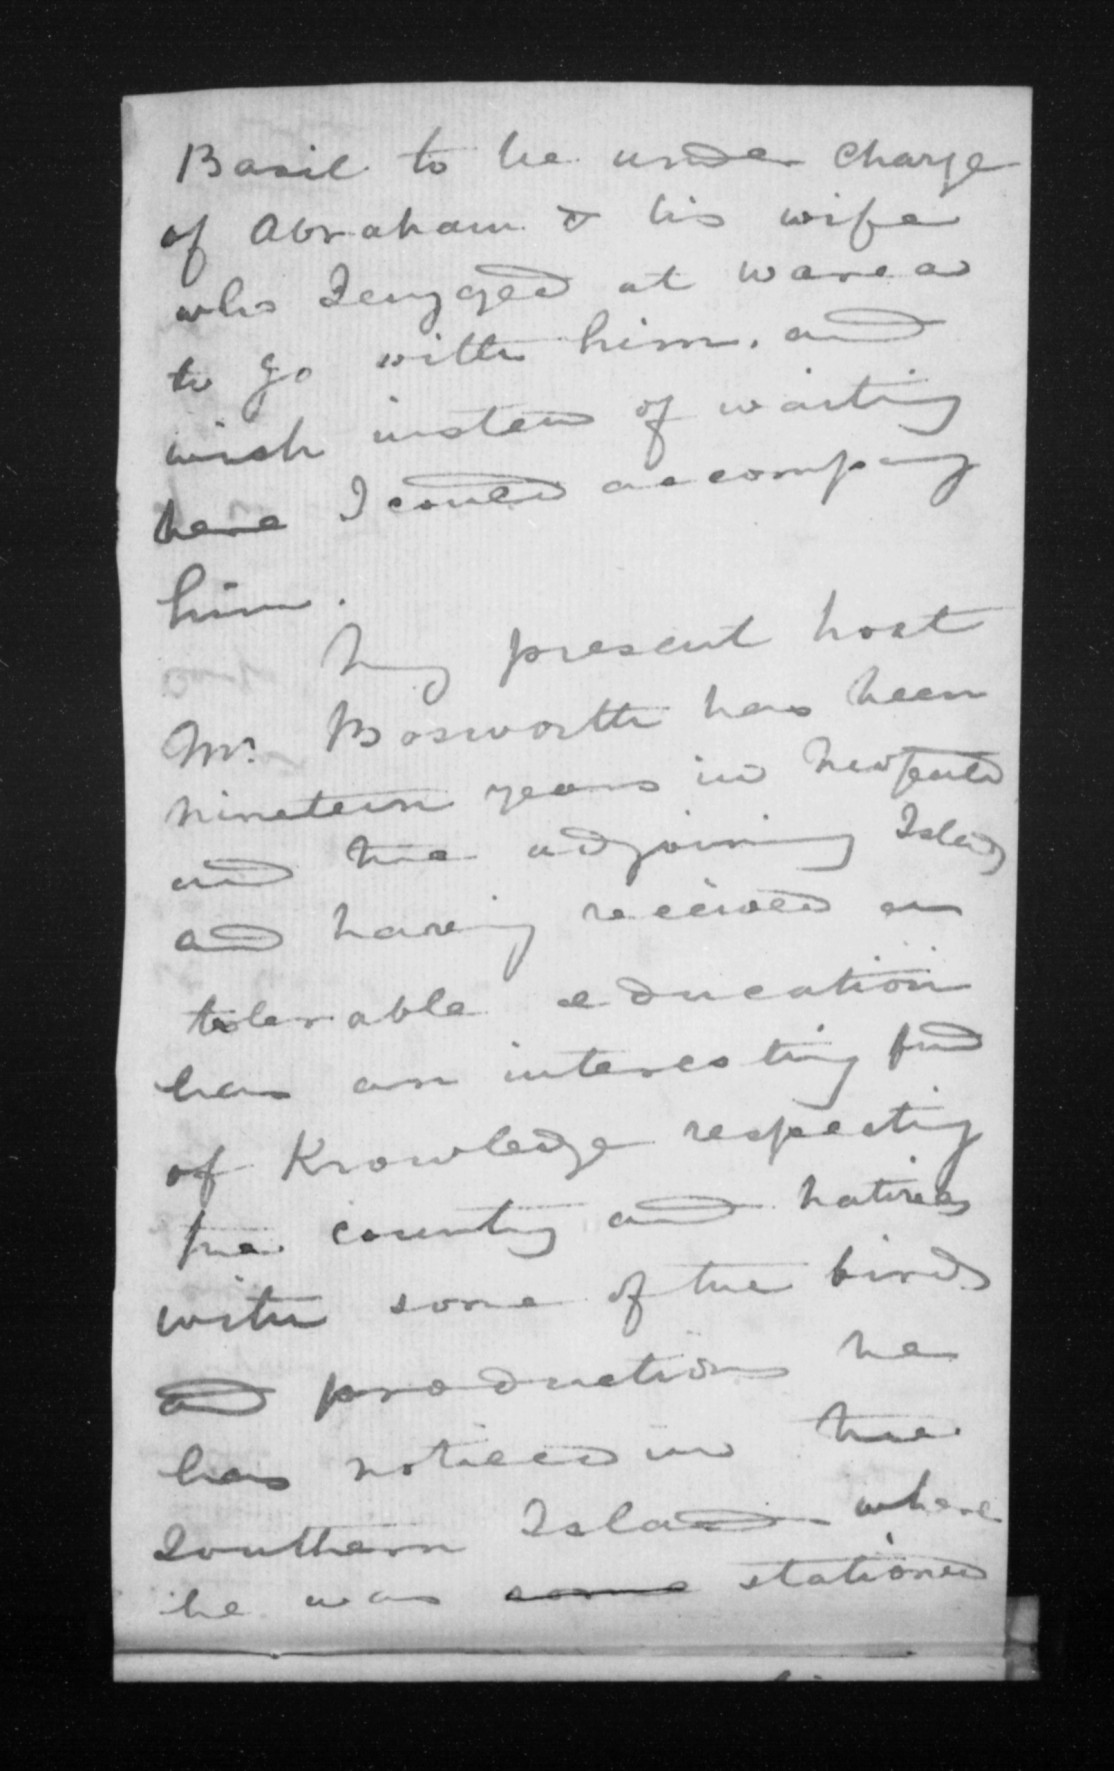 Basil to be under charge
of Abraham & his wife
who I engaged at Warea
to go with him. and
wish instead of waiting
here I could accompany
him.
My present host
Mr. Bosworth has been
nineteen years in
and the adjoining Islands
and having received an
tolerable education
has an interesting fund
of Knowledge respecting
the country and natives
with some of the birds
and productions he
has noticed in the
Southern Islands where
he was some stationed